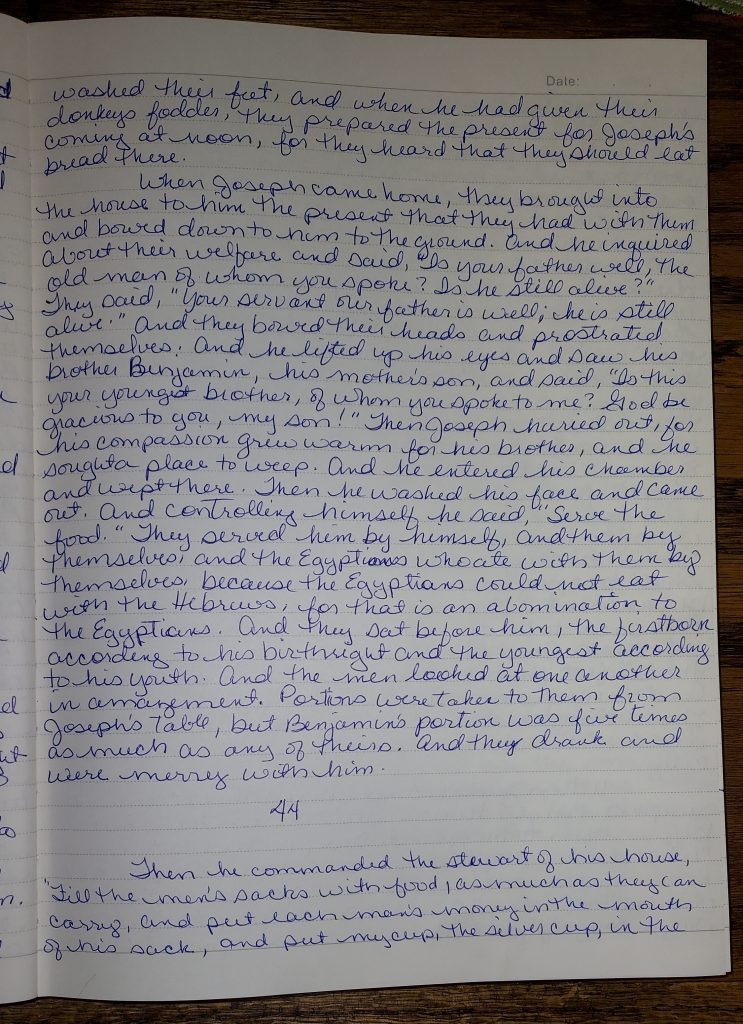 Date:
washed their feet, and when he had given their
donkeys fodder, they prepared the present for Joseph's
coming at noon, for they heard that they should eat
bread there.
When Joseph came home, they brought into
the house to him the present that they had with them
and bowed down to him to the ground. And he inquired
about their welfare and said, "Is your father well, the
old man of whom you spoke? Is he still alive?"
They said, "Your servant our father is well; he is still
alive." And they bowed their heads and prostrated
themselves. And he lifted up his eyes and saw his
brother Benjamin, his mother's son, and said, "Is this
your youngest brother, of whom you spoke to me? God be
gracious to you, my son!" Then Joseph huried out, for
his compassion grew warm for his brother, and he
sought a place to weep. And he entered his chamber
and wept there. Then he washed his face and came
out. And controlling himself he said, "Serve the
food." They served him by himself, and them by
themselves, and the Egyptians who ate with them by
themselves, because the Egyptians could not eat
with the Hebrews, for that is an abomination to
the Egyptians. And they sat before him, the firstborn
according to his birthright and the youngest according
to his youth. And the men looked at one another
in amazement. Portions were taken to them from
Joseph's table, but Benjamin's portion was five times
as much as any of theirs. And they drank and
were merrey with him.
44
Then he commanded the stewart of his house,
"Fill the men's sacks with food, as much as they can
carry, and put each man's money in the mouth
of his sack, and put my cup, the silver cup, in the